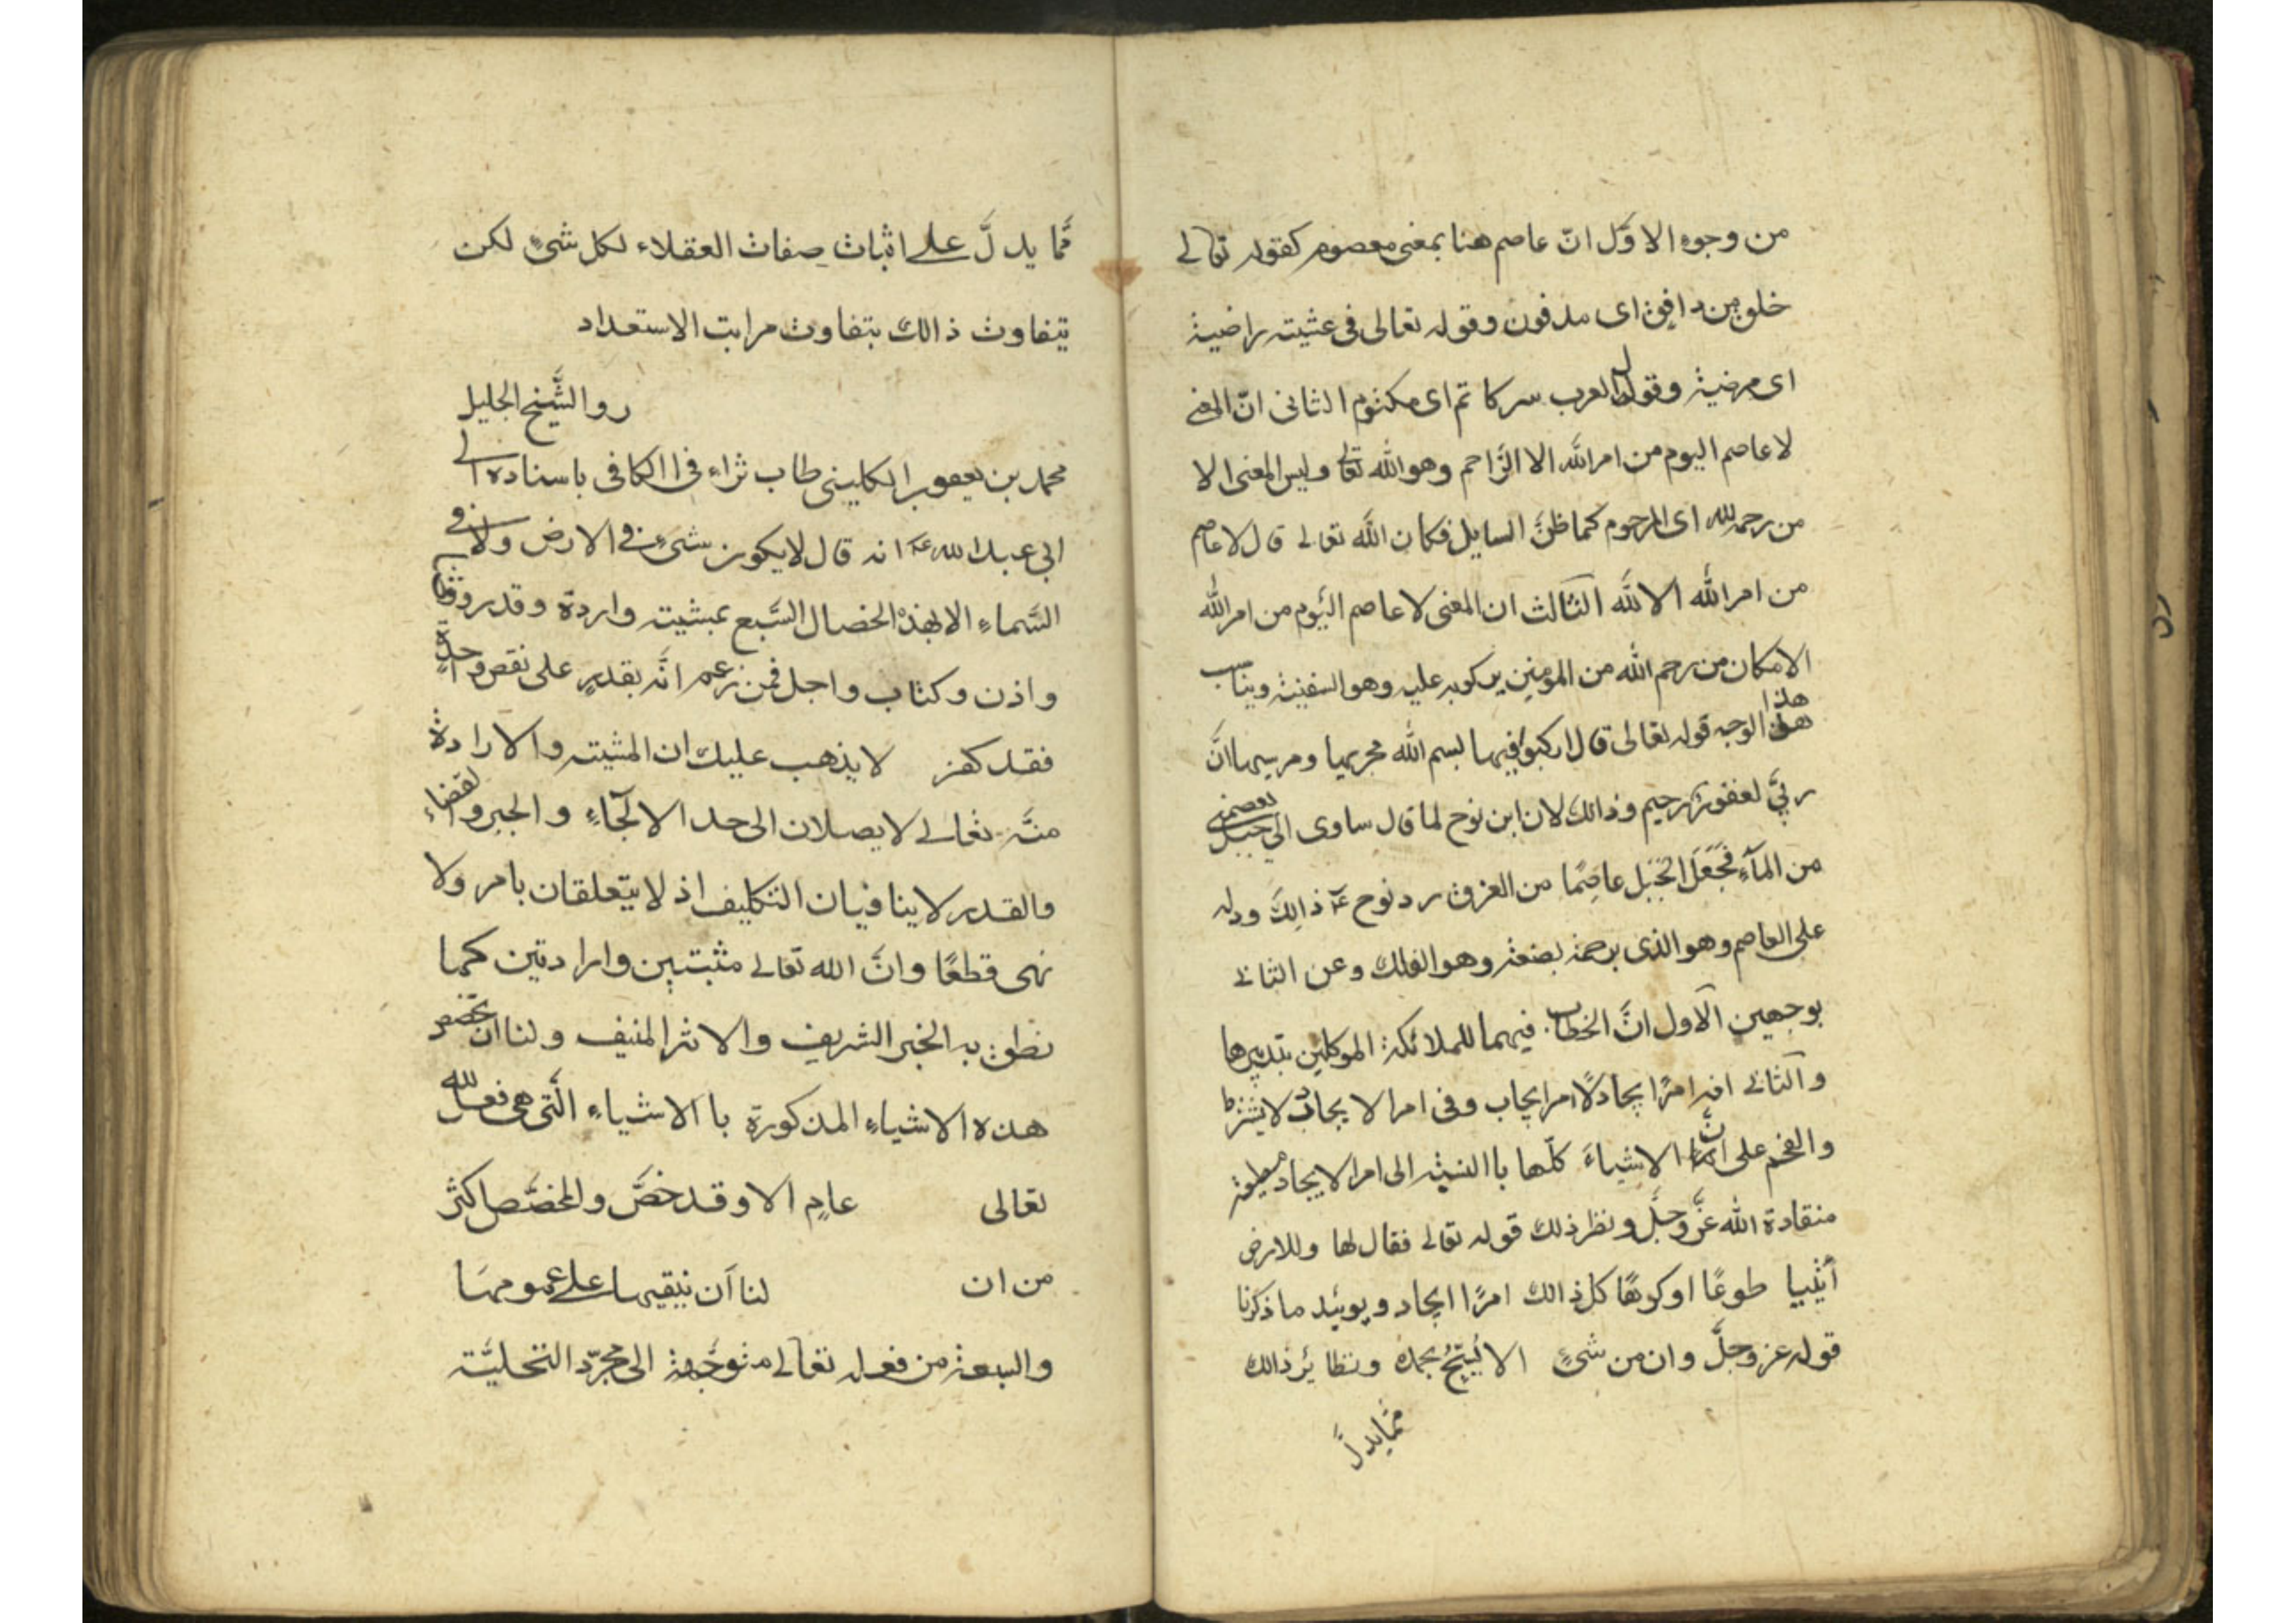 من وجوه الاوّل انّ عاصم هنا بمعنى معصوم كقوله تعالى
خلق من دافق اى مدفون وقوله تعالى فى عشيته راضية
اى مرضية وقول العرب سر كاتم اى مكثوم الثانى انّ المعنى
لا عاصم اليوم من امر الله الا الرّاحم وهو الله تعالى وليس المعنى الا
من رحمه الله اى المرحوم كما ظنّ السايل فكان الله تعالى قال لا عاصم
من امر الله الا الله الثالث ان المعنى لا عاصم اليوم من امر الله
الا مكان من رحم الله من المومنين يركوبه عليه وهو السفينة ويناسب
هذا الوجه قوله تعالى قال اركبوا فيها بسم الله مجريها ومرسيها انّ
ربّي لغفور رحيم وذالك لان ابن نوح لما قال ساوى الى جبل يعصمنى
من المآء فَجَعَلَ الجَبَل عاصِمًا من الغرق رد نوح عـ ذالِكَ ودله
على العاصم وهو الذى برحمة بضعة وهو الفلك وعن الثانى
بوجهين الآول انَّ الخطاب فيهما للملائكة الموكلين بتدبيرها
والثانى انه امرًا يجاد لًا امر ايجاب وفى امر الايجاد لا يشترط
والفخم على انّ الاشياءَ كلّها باالنسبة الى امر الايجاد مطيعة
منقادة الله عزّ وجلّ ونظر ذلك قوله تعالى فقال لها وللارض
أئتيا طوعًا او كرهًا كل ذالك امرًا ايجاد ويوئيد ما ذكرنا
قوله عز وجلَّ وان من شئٍ الا يُسبّحُ بحمده ونظايرُ ذالك
ممّا يدلّ
ممّا يدلَّ على اثبات صِفات العقلاء لكل شئٍ لكن
يتفاوت ذالك بتفاوت مراتب الاستعداد
روالشَّيخ الجليل
محمد بن يعقوب الكلينى طاب ثراه فى االكافى باسناده الى
ابى عبد الله عـ انه قال لا يكون شئٍ فى الارض ولا فى
السَّماءِ الا بهذهْ الخصال السَّبع بمشيته وارادة وقدر وقضا
واذن وكتاب واجل فمن زعم انَّه يقدر على نقص واحدةٍ
فقد كفر لا يذهب عليك ان المشيته والارادة
منّه تعالى لا يصلان الى حد الالجآءِ والجبر والقضاء
والقدر لا ينافيان التكليف اذ لا يتعلقان بامر ولا
نهى قطعًا وانَّ الله تعالى مشيتين وارادتين كما
نطق به الخبر الشريف والاثر المنيف ولنا ان نخصص
هذه الاشياءِ المذكورة باالاشياءِ الّتى هى فعل الله
تعالى عامٍ الا وقد خصَّ والمخصّص اكثر
من ان لنا ان نبقيها على عمومها
والسعة من فعله تعالى متوجّهة الى مجرّد التخليّة